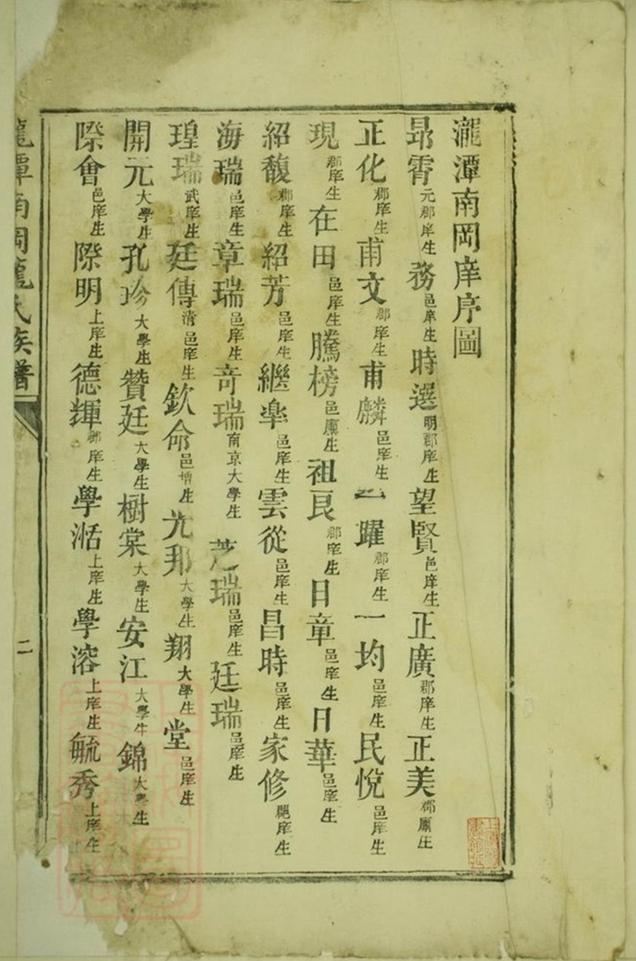 瀧潭南岡庠序圖
昻霄元郡庠生 務邑庠生 時選明郡庠生 望賢邑庠生 正廣郡庠生 正美郡廩生
正化郡庠生 甫文郡庠生 甫麟邑庠生 一躍郡庠生 一均邑庠生 民悅邑庠生
現郡庠生 在田邑庠生 騰榜邑廩生 祖艮郡庠生 日章邑庠生 日華邑庠生
紹馥郡庠生 紹芳邑庠生 繼率邑庠生 雲從邑庠生 昌時邑庠生 家修邑庠生
海瑞邑庠生 章瑞邑庠生 奇瑞南京大學生 芝瑞邑庠生 廷瑞邑庠生
瑝瑞武庠生 廷傳清邑庠生 欽命邑增生 光邦大學生 翔大學生 堂邑庠生
開元大學生 孔珍大學生 贊廷大學生 樹棠大學生 安江大學生 錦大學生
際會邑庠生 際明上庠生 德輝郡庠生 學湉上庠生 學溶上庠生 毓秀上庠生
瀧潭南岡龐氏族譜
二